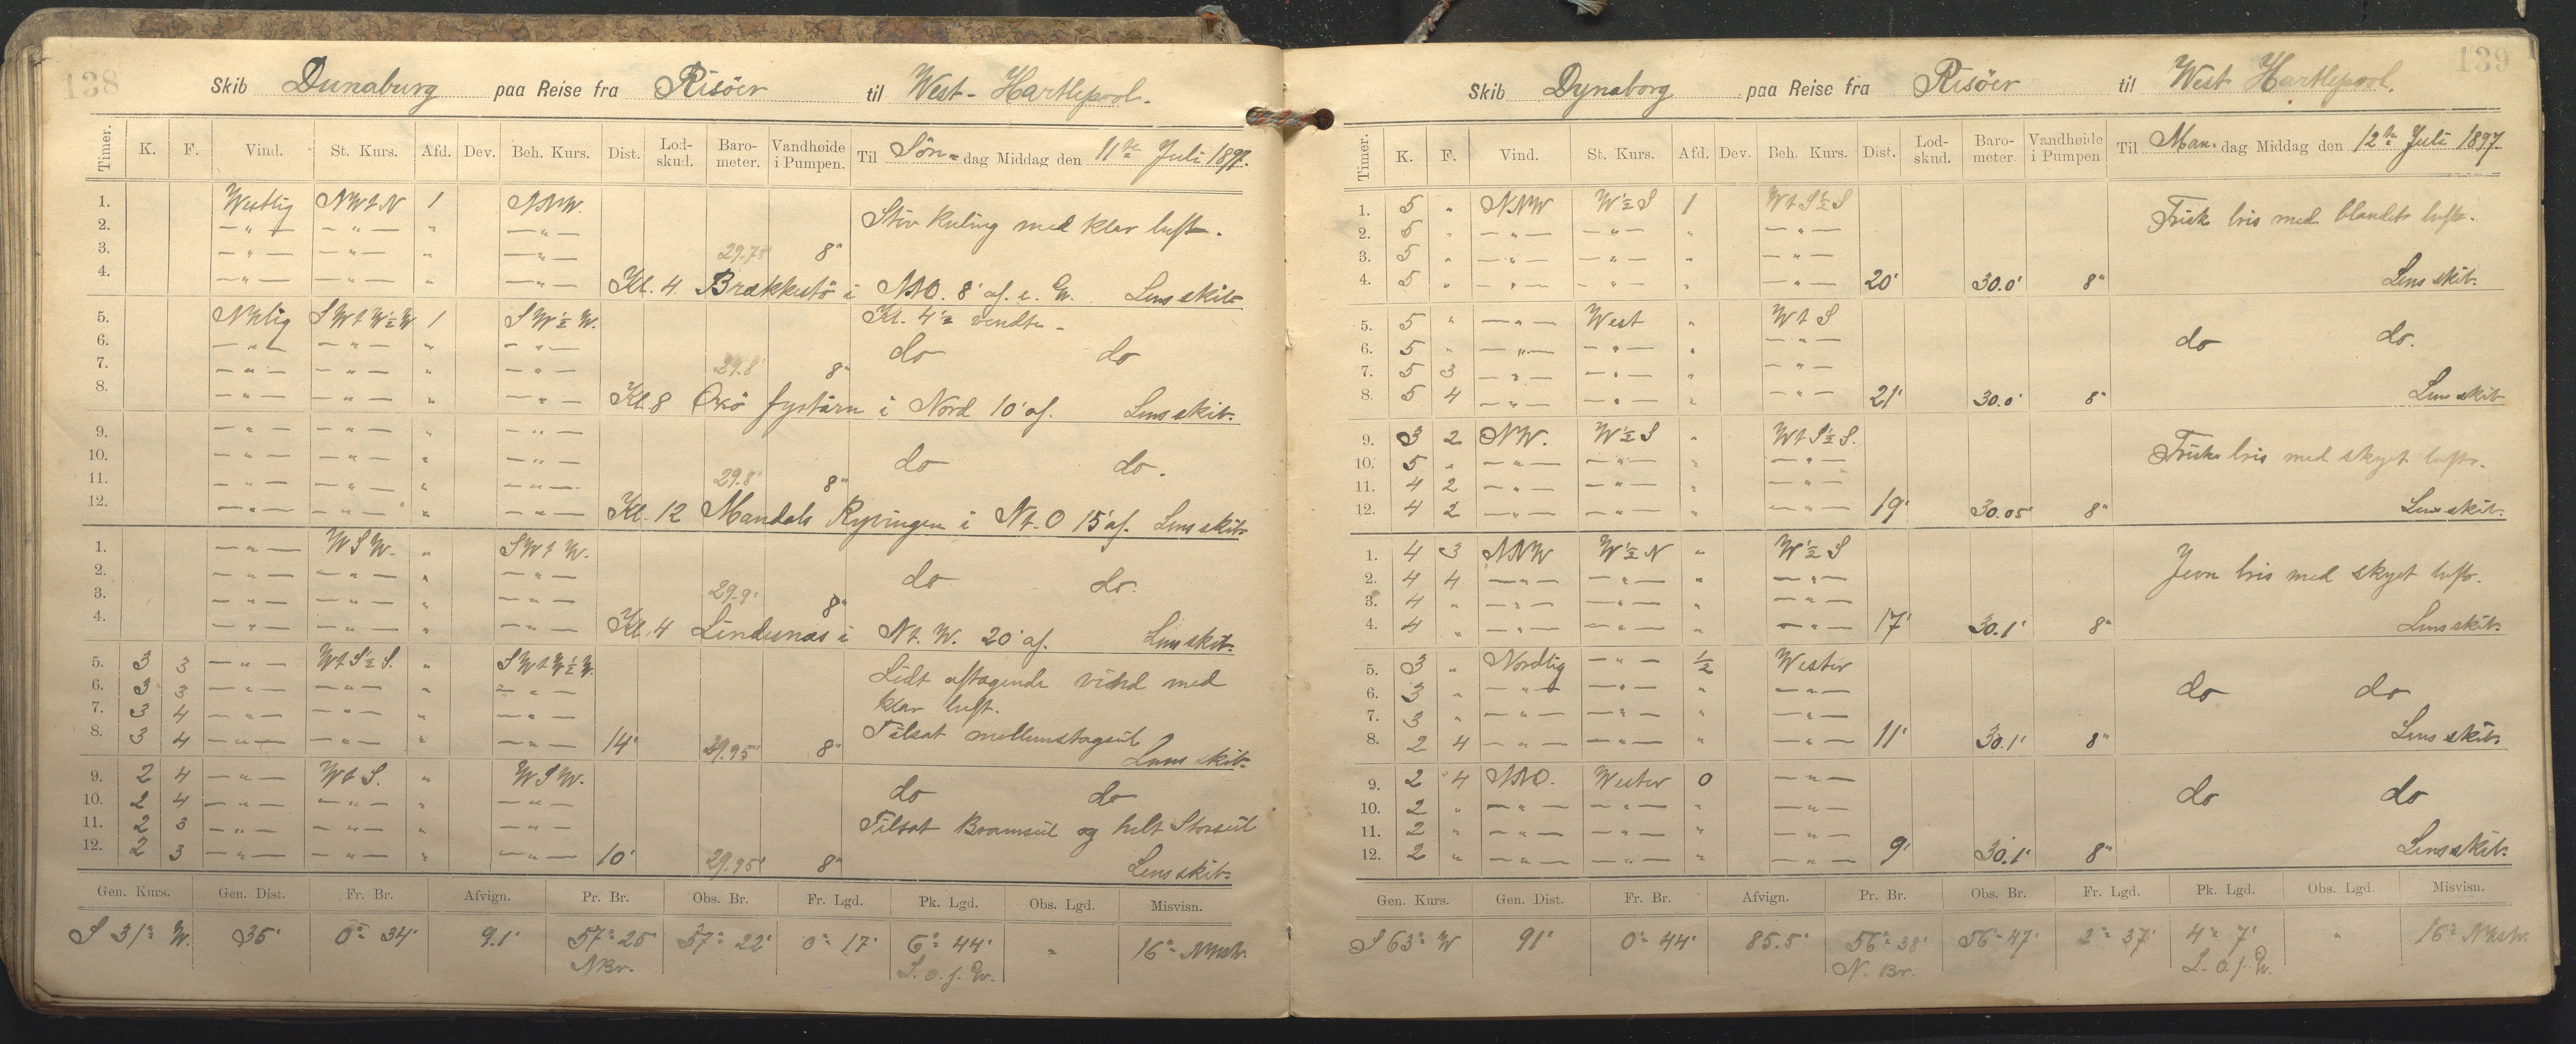 138
Skib Dunaburg paa Reise fra Risöer til West-Hartlepool.
Timer. K. F. Vind. St. Kurs. Afd. Dev. Beh. Kurs. Dist. Lod-skud. Baro-meter. Vandhøide i Pumpen. Til Søn-dag Middag den 11te Juli 1897.
1. Westlig NWtN 1 NNW. Stiv kuling med klar luft.
2. —"— —"— " —"—
3. —"— —"— " —"— 29.75 8"
4. —"— —"— " —"— Kl. 4 Brækkestö i NNO. 8' af. Lens skib
5. NWlig SWtW½W 1 SW½W. Kl. 4½ vendte
6. —"— —"— " —"— do do
7. —"— —"— " —"— 29.8' 8"
8. —"— —"— " —"— Kl. 8 Oxö fystårn i Nord 10' af. Lens skib.
9. —"— —"— " —"—
10. —"— —"— " —"— do do.
11. —"— —"— " —"— 29.8' 8"
12. —"— —"— " —"— Kl. 12 Mandals Ryvingen i Nt.O 15' af. Lens skib
1. —"— WSW. " SWtW.
2. —"— —"— " —"— do do.
3. —"— —"— " —"— 29.9' 8"
4. —"— —"— " —"— Kl. 4 Lindesnæs i Nt.W. 20' af. Lens skib.
5. 3 3 —"— WtS½S. " SWtW½W. Lidt aftagende vind med
6. 3 3 —"— —"— " —"— klar luft.
7. 3 4 —"— —"— " —"— Tilsat mellumstagseil
8. 3 4 —"— —"— " —"— 14' 29.95' 8" Lens skib.
9. 2 4 —"— WtS. " WSW. do do
10. 2 4 —"— —"— " —"—
11. 2 3 —"— —"— " —"— Tilsat Bramseil og helt Storseil
12. 2 3 —"— —"— " —"— 10' 29.95' 8" Lens skib.
Gen. Kurs. Gen. Dist. Fr. Br. Afvign. Pr. Br. Obs. Br. Fr. Lgd. Pk. Lgd. Obs. Lgd. Misvisn.
S 31° W. 35' 0° 34' 9.1' 57° 25' 57° 22' 0° 17' 6° 44' " 16°
NBr. L.O.f.Gr.
139
Skib Dynaborg paa Reise fra Risöer til West Hartlepool.
Timer. K. F. Vind. St. Kurs. Afd. Dev. Beh. Kurs. Dist. Lod-skud. Baro-meter. Vandhøide i Pumpen Til Man.dag Middag den 12te Juli 1897.
1. 5 " NNW W½S 1 WtS½S Frisk bris med blandet luft.
2. 5 " —"— —"— " —"—
3. 5 " —"— —"— " —"—
4. 5 " —"— —"— " —"— 20' 30.0' 8" Lens skib.
5. 5 " —"— West " WtS
6. 5 " —"— —"— " —"— do do.
7. 5 3 —"— —"— " —"—
8. 5 4 —"— —"— " —"— 21' 30.0' 8" Lens skib
9. 3 2 NW. W½S " WtS½S. Frisk bris med skyet luft.
10. 5 " —"— —"— " —"—
11. 4 2 —"— —"— " —"—
12. 4 2 —"— —"— " —"— 19' 30.05' 8" Lens skib.
1. 4 3 NNW W½N " W½S Jevn bris med skyet luft.
2. 4 4 —"— —"— " —"—
3. 4 " —"— —"— " —"—
4. 4 " —"— —"— " —"— 17' 30.1' 8" Lens skib.
5. 3 " Nordlig —"— ½ Wester
6. 3 " —"— —"— " —"— do do
7. 3 " —"— —"— " —"—
8. 2 4 —"— —"— " —"— 11' 30.1' 8" Lens skib.
9. 2 4 NNO. Wester 0 —"— do do
10. 2 " —"— —"— " —"—
11. 2 " —"— —"— " —"—
12. 2 " —"— —"— " —"— 9' 30.1' 8" Lens skib.
Gen. Kurs. Gen. Dist. Fr. Br. Afvign. Pr. Br. Obs. Br. Fr. Lgd. Pk. Lgd. Obs. Lgd. Misvisn.
S 63° W 91' 0° 44' 85.5' 56° 38' 56° 47' 2° 37' 4° 7' " 16°
N. Br. L.O.f.Gr.